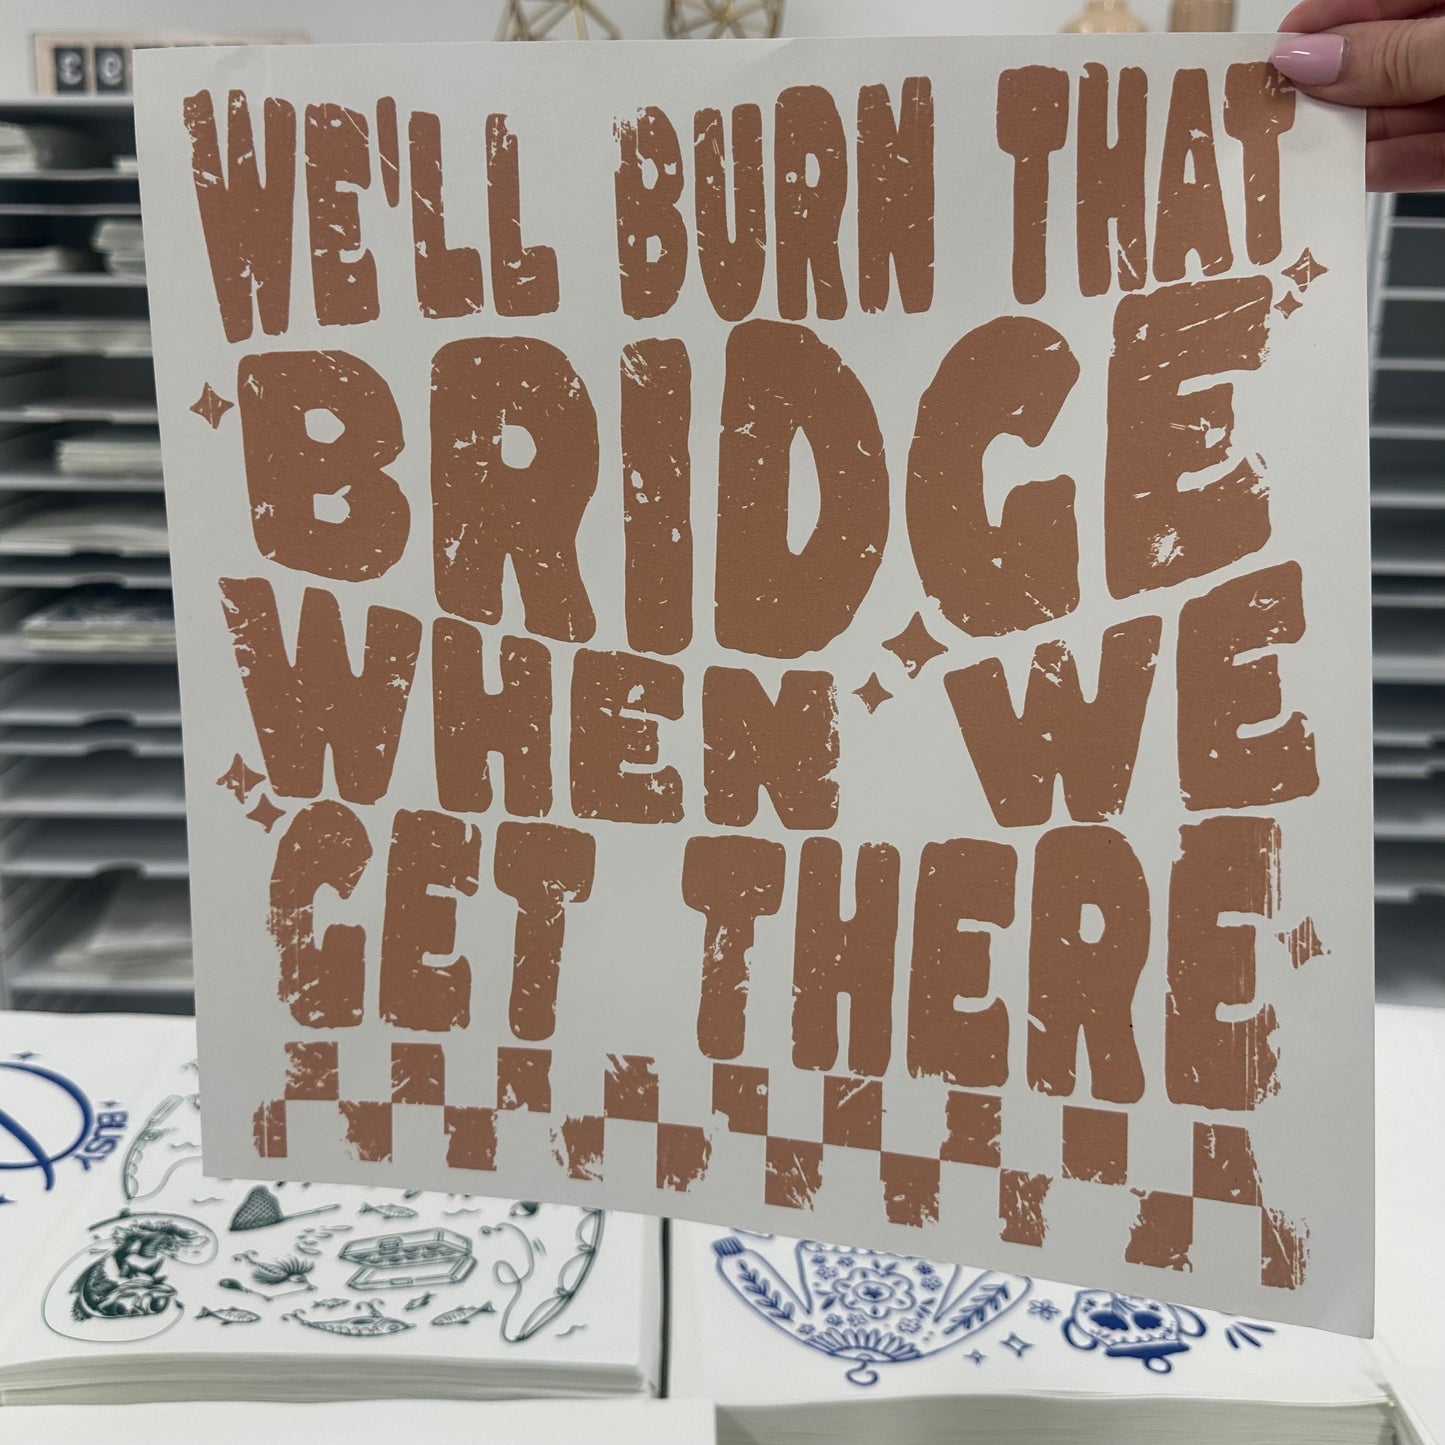 WE'LL BURN THAT
BRIDGE
WHEN WE
GET THERE
BUSY